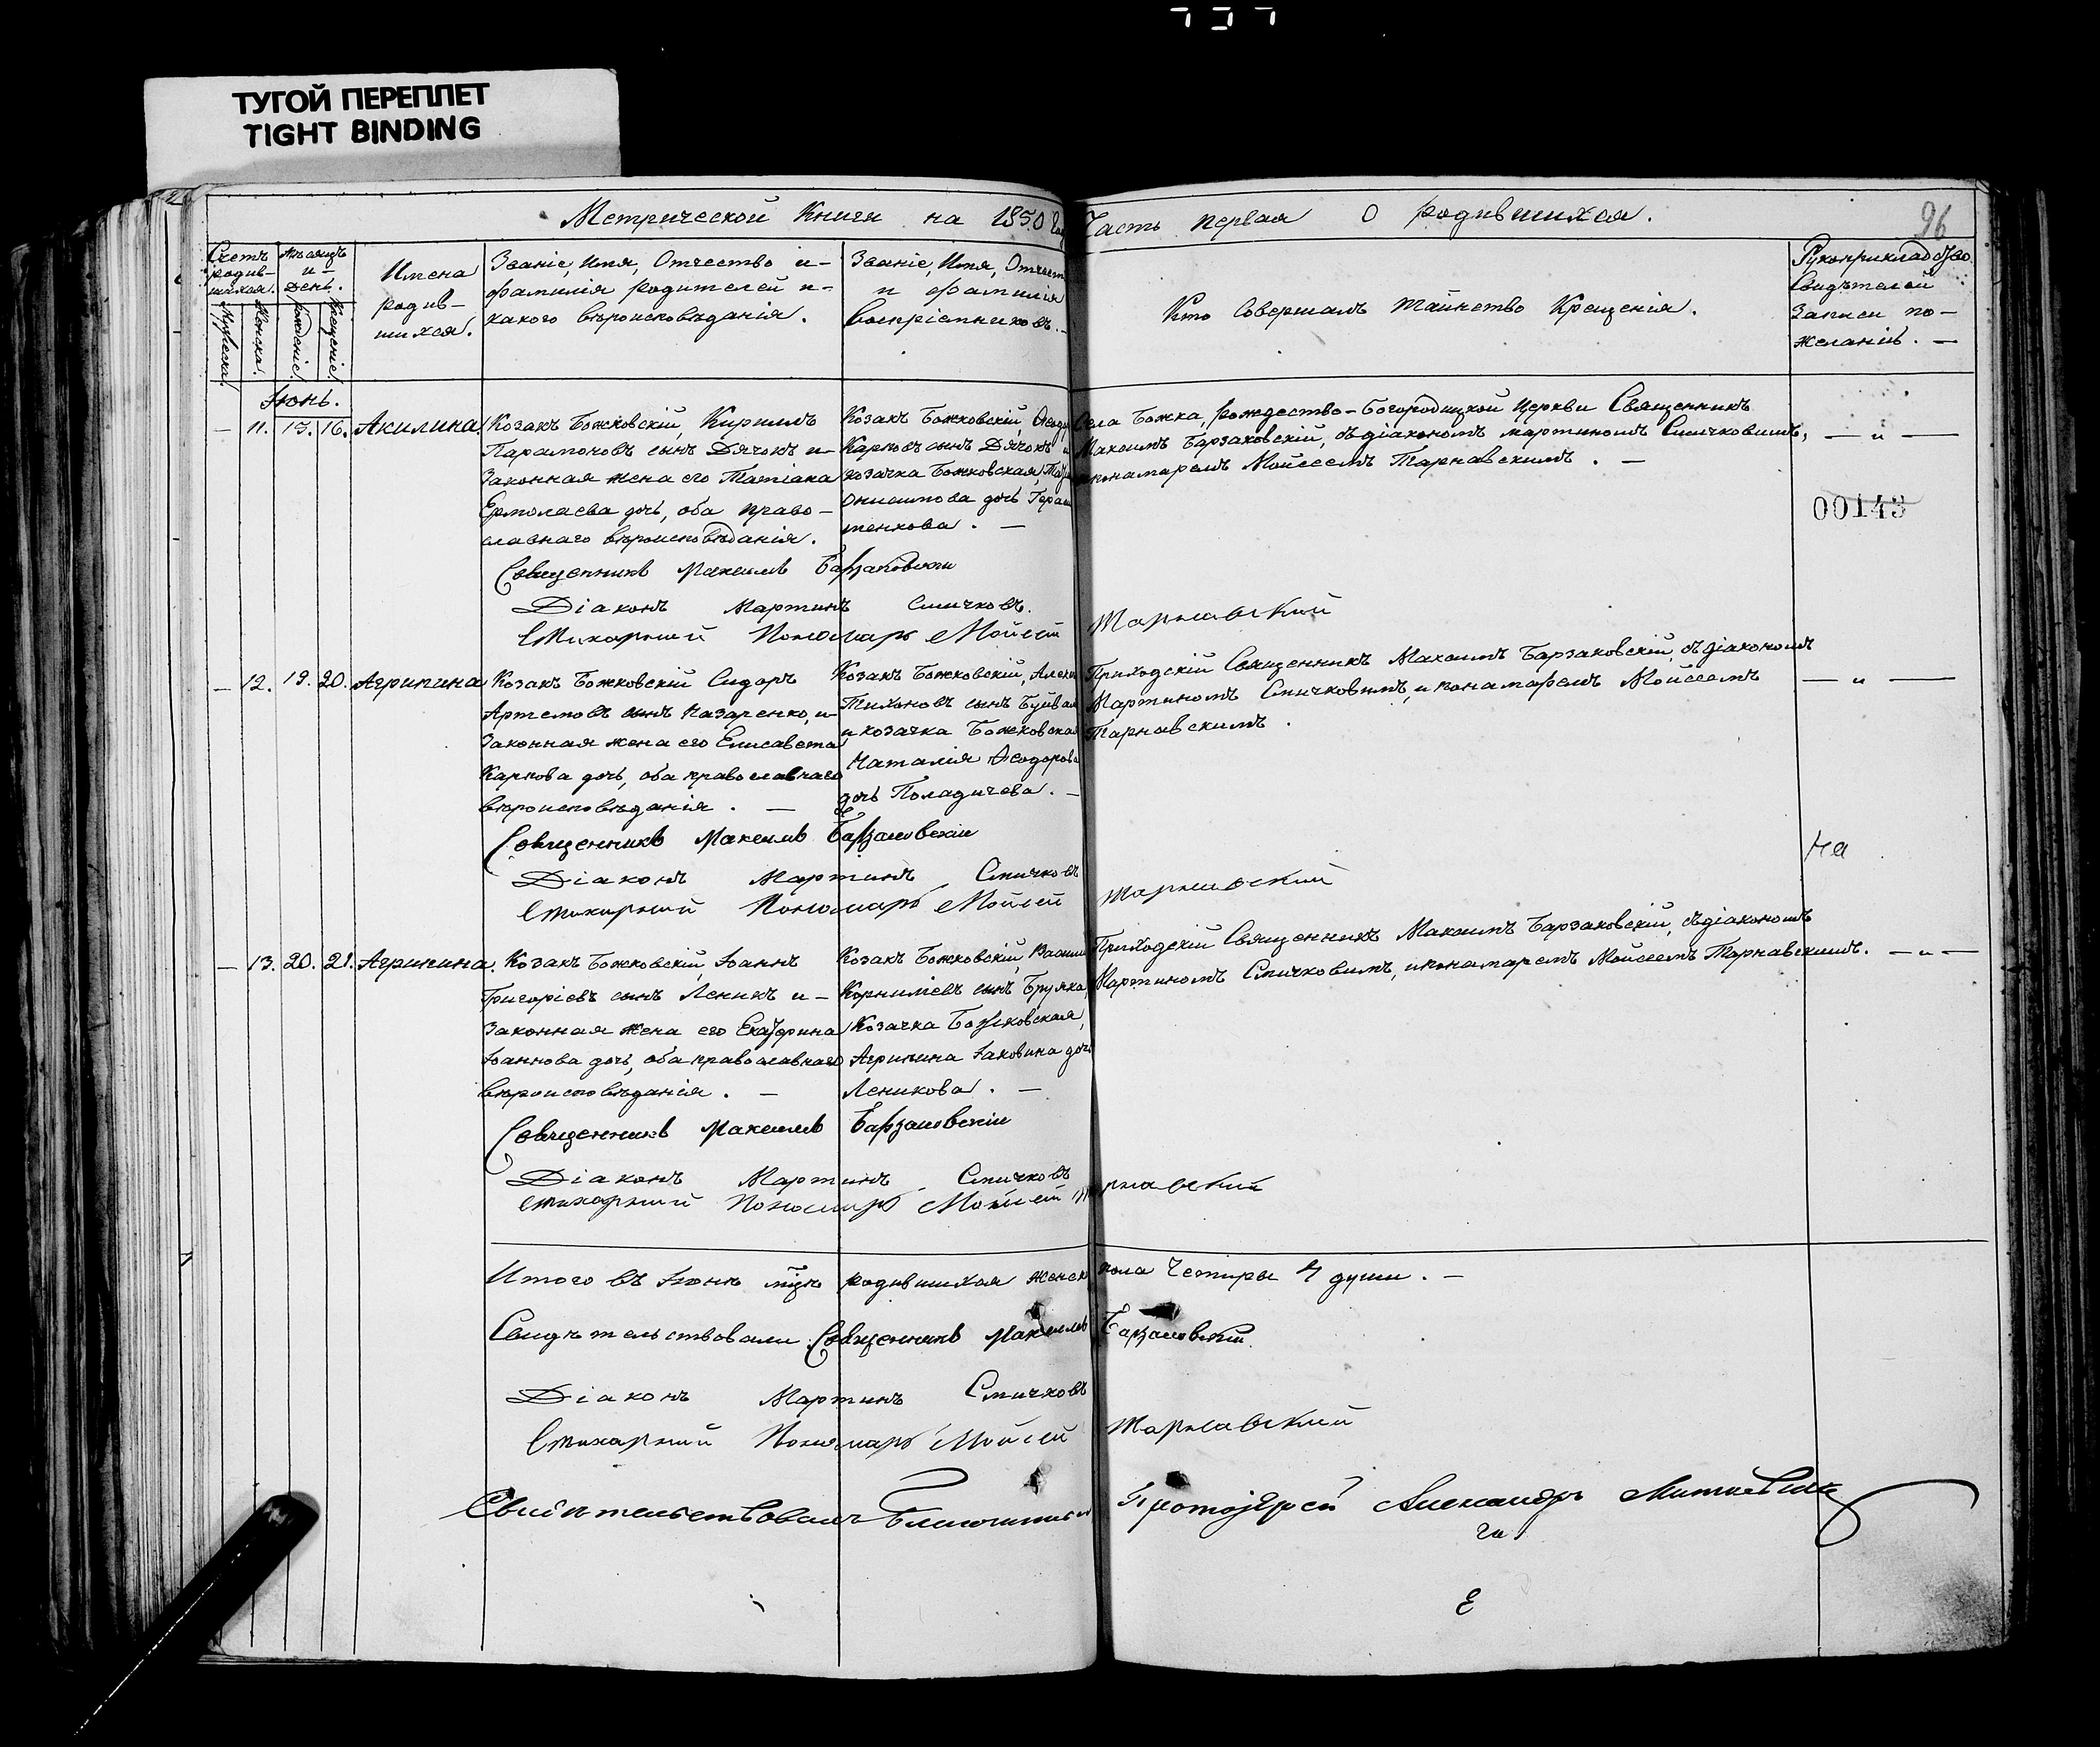 ТУГОЙ ПЕРЕПЛЕТ
TIGHT BINDING
Метрической Книги на 1850 год Часть первая о родившихся.
96
Счетъ родив-шихся.
Мужеска.
Женска.
Мѣсяцъ и день.
рожденіе.
Крещеніе.
Имена
родив-
шихся.
Званіе, Имя, Отчество и-
фамилія родителей и-
какого вѣроисповѣданія.
Званіе, Имя, Отчест
и фамилія
Воспріемниковъ. –
Кто Совершалъ Таинство Крещенія.
Рукоприкладство
Свидѣтелей
Записи по-
желанію. —
Іюнь.
— 11. 15. 16. Акилина.
Козакъ Божковскій, Кирилъ
Парамоновъ сынъ Дячокъ и-
Законная жена его Татіана
Ермолаева дочь, оба право-
славнаго вѣроисповѣданія.
Козакъ Божковскій, Ѳеодо
Карповъ сынъ Дячокъ и
козачка Божковская,
Онисимова дочь Гераси
менкова. —
Села Божка, рождество-Богородицкой Церкви Священникъ
Максимъ Барзаковскій, съ діакономъ мартиномъ Спичковимъ,
и понамаремъ Мойсеемъ Тарнавскимъ. —
— „ —
00143
Священникъ Максимъ Барзаковскій
Діаконъ Мартинъ Спичковъ.
Стихарний Пономарь Мойсей Тарнавский
— 12. 19. 20. Агрипина
Козакъ Божковскій Сидоръ
Артемовъ сынъ Назаренко, и-
Законная жена его Елисавета
Карпова дочь, оба православнаго
вѣроисповѣданія. —
Козакъ Божковскій, Алекс
Тихоновъ сынъ Буйвал
и козачка Божковская
Наталія Ѳеодорова
дочь Поладичева. —
Приходскій Священникъ Максимъ Барзаковскій, съ діакономъ
Мартиномъ Спичковимъ, и понамаремъ Мойсеемъ
Тарнавскимъ.
— „ —
Священникъ Максимъ Барзаковскій
На
Діаконъ Мартинъ Спичковъ
Стихарний Пономарь Мойсей Тарнавский
— 13. 20. 21. Агрипина.
Козакъ Божковскій, Іоаннъ
Григоріевъ сынъ Леникъ и-
Законная жена его Екатерина
Іоаннова дочь, оба православнаго
вѣроисповѣданія. —
Козакъ Божковскій, Васили
Корниліевъ сынъ Бруяка,
Козачка Божковская,
Агрипина Іаковина дочь
Леникова. —
Приходскій Священникъ Максимъ Барзаковскій, съ діакономъ
Мартиномъ Спичковимъ, и понамаремъ Мойсеемъ Тарнавскимъ.
— „ —
Священникъ Максимъ Барзаковскій
Діаконъ Мартинъ Спичковъ
Стихарний Пономарь Мойсей Тарнавский
Итого въ Іюнѣ мцѣ родившихся женск пола Четиры 4 души. —
Свидѣтельствовали Священникъ Максимъ Барзаковскій.
Діаконъ Мартинъ Спичковъ
Стихарний Пономарь Мойсей Тарнавский
Свидѣтельствовалъ Благочинный Протоіерей Александръ